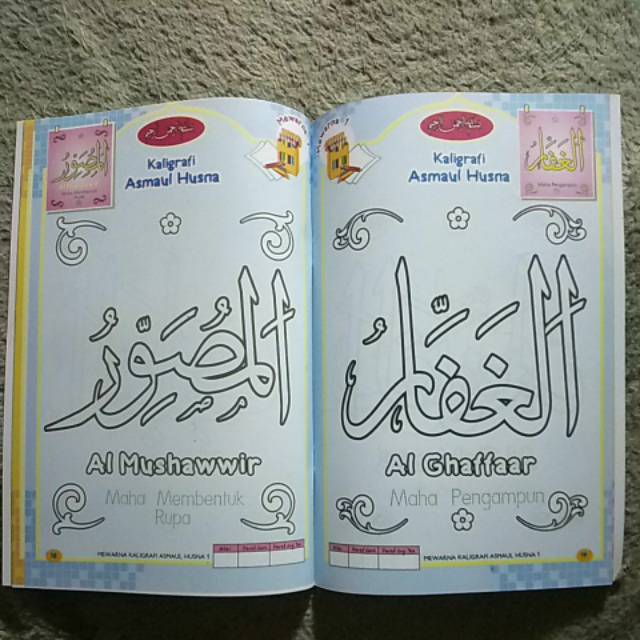 Kaligrafi
Asmaul Husna
المُصَوِّرُ
المُصَوِّرُ
Al Mushawwir
Maha Membentuk
Rupa
MEWARNA KALIGRAFI ASMAUL HUSNA 1
Kaligrafi
Asmaul Husna
الغَفَّارُ
Maha Pengampun
الغَفَّارُ
Al Ghaffaar
Maha Pengampun
MEWARNA KALIGRAFI ASMAUL HUSNA 1